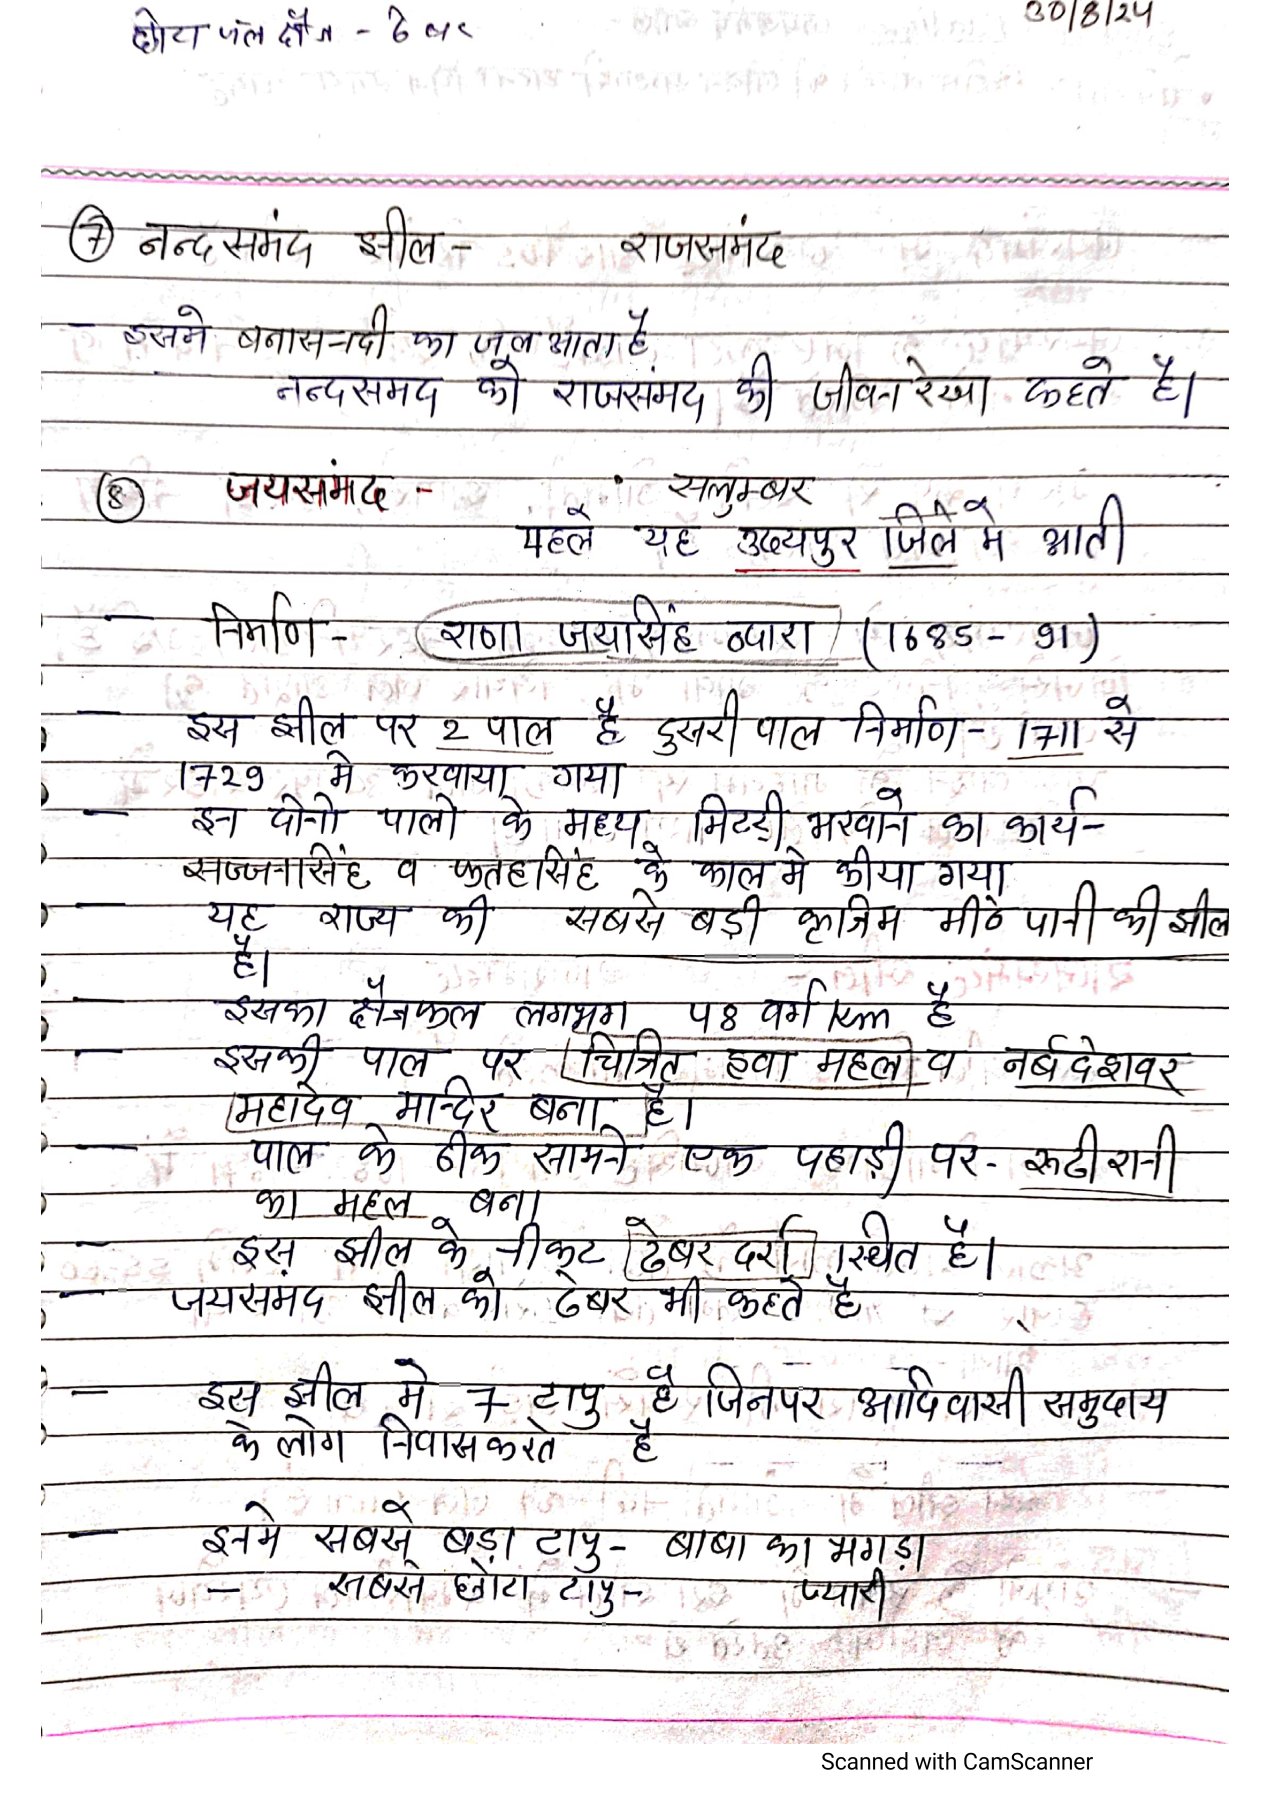 छोटा जल क्षैत्र - ढेबर
30/8/24
⑦ नन्दसमंद झील - राजसमंद
- इसमे बनास नदी का जल आता है
नन्दसमद को राजसंमद की जीवन रेखा कहते है।
⑧ जयसमंद - सलुम्बर
पहले यह उदयपुर जिले मे आती
- निर्माण - राणा जयसिंह द्वारा (1685 - 91)
- इस झील पर 2 पाल है दुसरी पाल निर्माण - 1711 से
1729 मे करवाया गया
- इन दोनो पालो के मध्य मिटटी भरवाने का कार्य -
सज्जनसिंह व फतहसिंह के काल मे कीया गया
- यह राज्य की सबसे बड़ी कृत्रिम मीठे पानी की झील
है।
- इसका क्षैत्रफल लगभग 48 वर्ग km है
- इसकी पाल पर चित्रित हवा महल व नर्बदेशवर
महादेव मन्दिर बना है।
- पाल के ठीक सामने एक पहाड़ी पर - रूठी रानी
का महल बना
- इस झील के नीकट ढेबर दर्रा स्थित है।
- जयसमंद झील को ढेबर भी कहते है
- इस झील मे 7 टापु है जिनपर आदिवासी समुदाय
के लोग निवास करते है
- इनमे सबसे बड़ा टापु - बाबा का भगड़ा
- सबसे छोटा टापु - प्यारी
Scanned with CamScanner